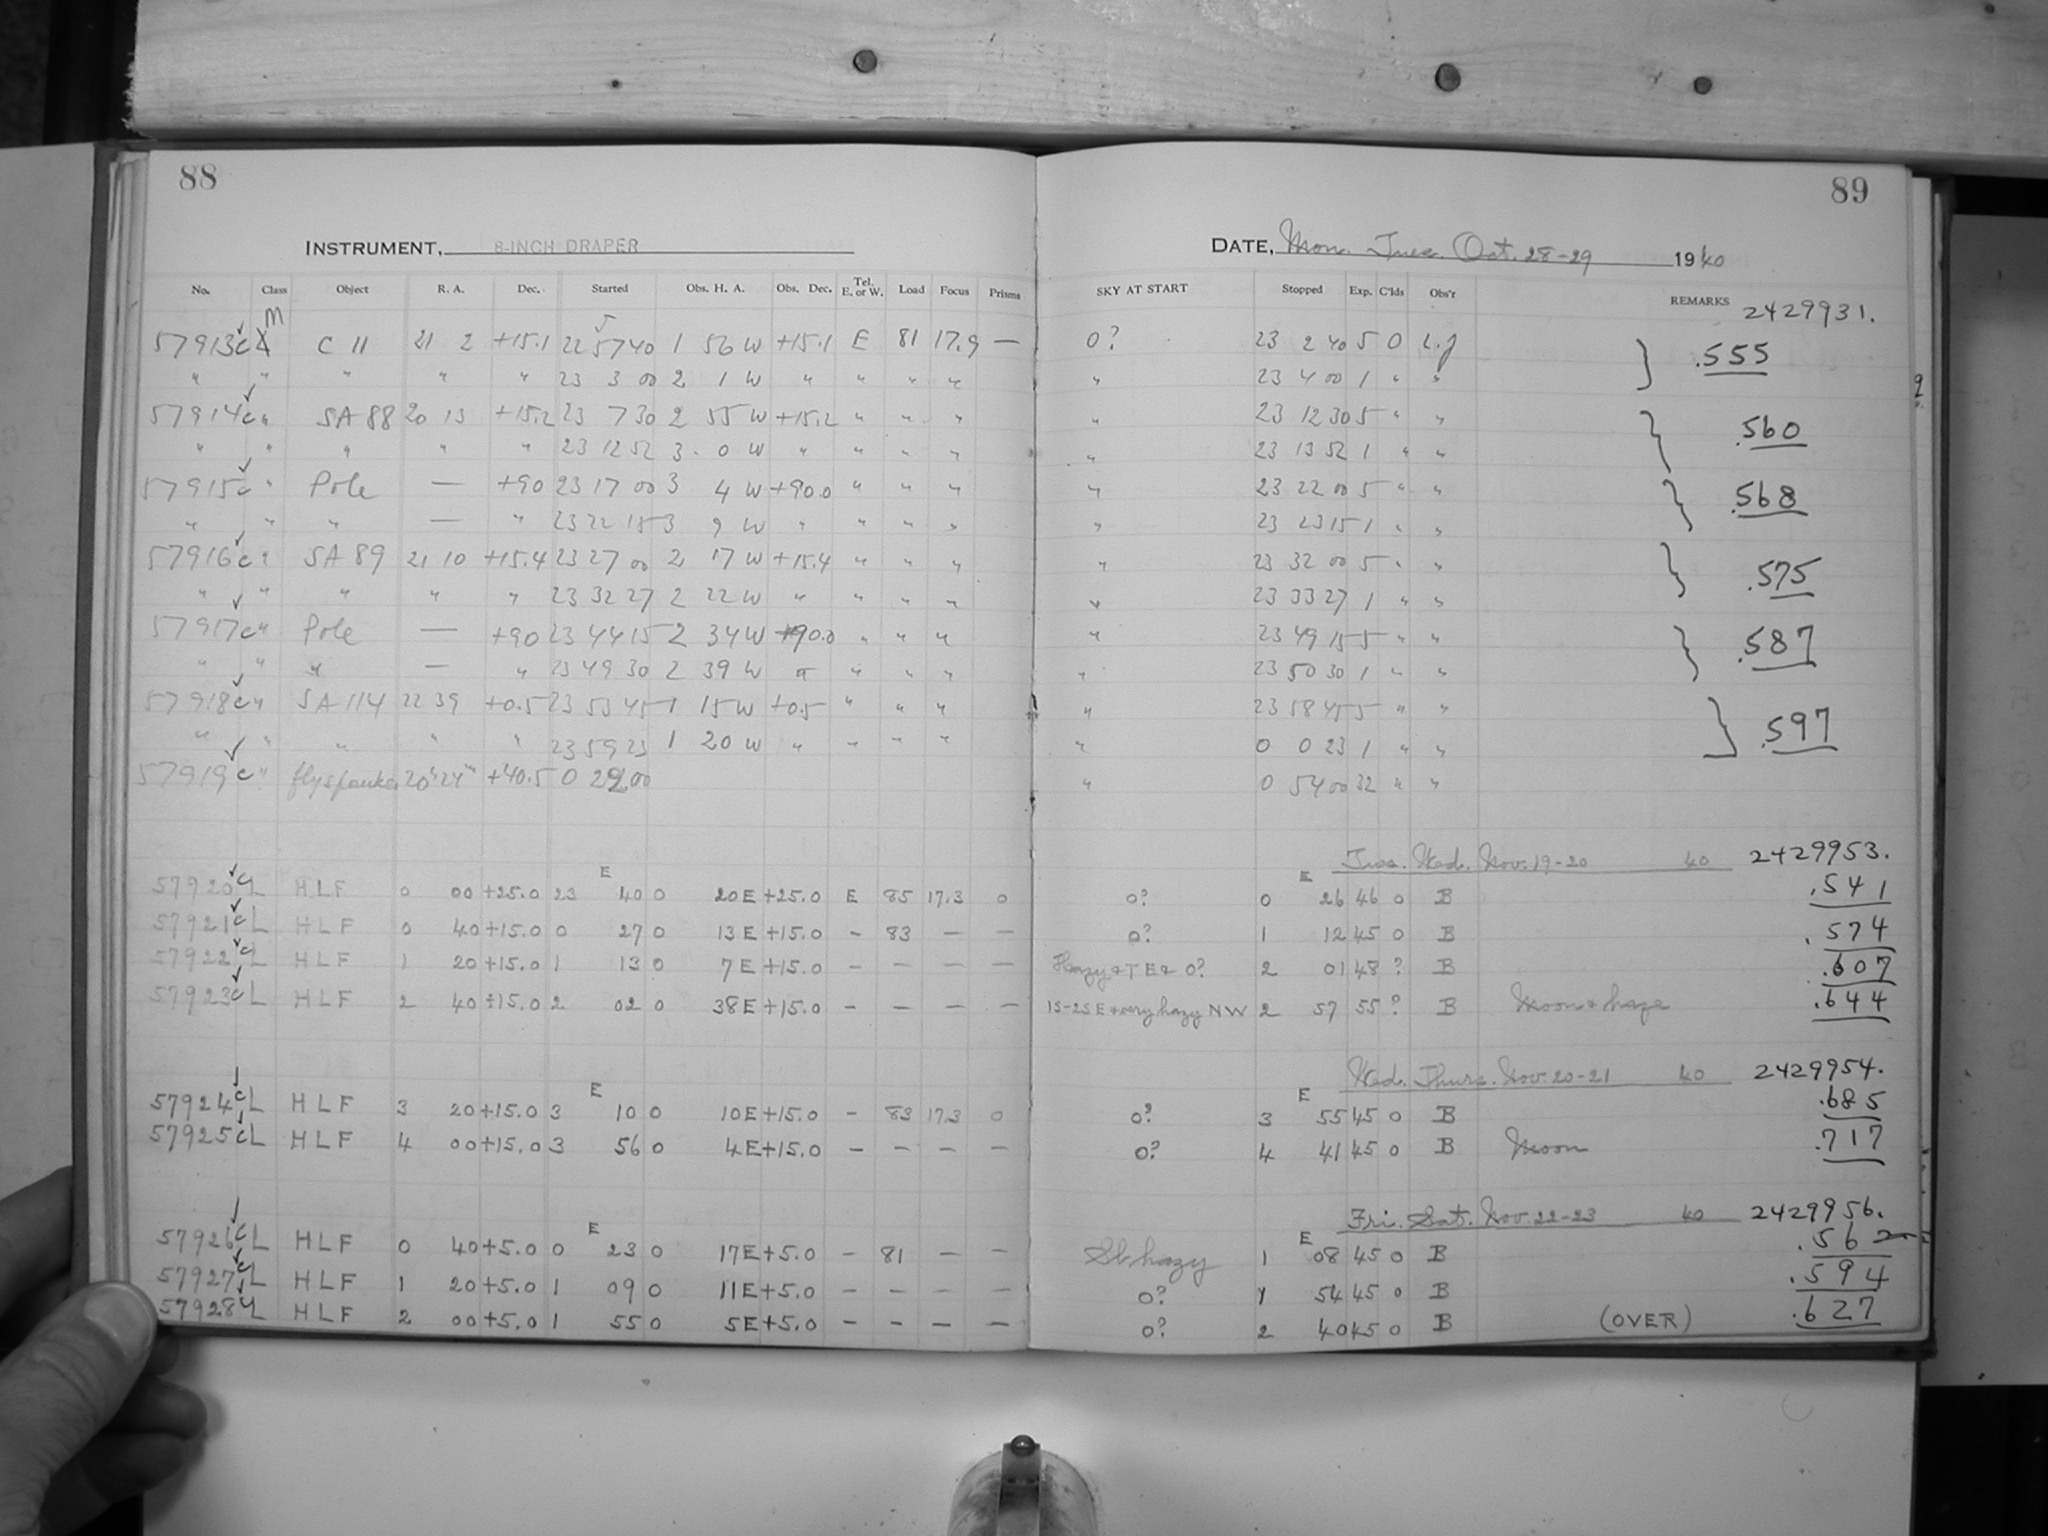 88
89
INSTRUMENT, 8-INCH DRAPER
DATE, Mon. Tues. Oct. 28-29 1940
No. Class Object R. A. Dec. Started Obs. H. A. Obs. Dec. Tel. E. or W. Load Focus Prisms SKY AT START Stopped Exp. C'lds Obs'r REMARKS 2429931.
M
57913c C 11 21 2 +15.1 22 57 40 1 56 W +15.1 E 81 17.9 — 0? 23 2 40 5 0 L.J } .555
" " " " " 23 3 00 2 1 W " " " " " 23 4 00 1 " "
57914c " SA 88 20 13 +15.2 23 7 30 2 55 W +15.2 " " " " 23 12 30 5 " " } .560
" " " " " 23 12 52 3 0 W " " " " " 23 13 52 1 " "
57915c " Pole — +90 23 17 00 3 4 W +90.0 " " " " 23 22 00 5 " " } .568
" " " — " 23 22 15 3 9 W " " " " " 23 23 15 1 " "
57916c " SA 89 21 10 +15.4 23 27 00 2 17 W +15.4 " " " " 23 32 00 5 " " } .575
" " " " " 23 32 27 2 22 W " " " " " 23 33 27 1 " "
57917c " Pole — +90 23 44 15 2 34 W +90.0 " " " " 23 49 15 5 " " } .587
" " " — " 23 49 30 2 39 W " " " " " 23 50 30 1 " "
57918c " SA 114 22 39 +0.5 23 53 45 1 15 W +0.5 " " " " 23 58 45 5 " " } .597
" " " " " 23 59 23 1 20 W " " " " " 0 0 23 1 " "
57919c " 20h 24m +40.5 0 22 00 " 0 54 00 32 " "
Tues. Wed. Nov. 19-20 40 2429953.
57920cL HLF 0 00 +25.0 23 E 40 0 20 E +25.0 E 85 17.3 0 0? 0 E 26 46 0 B .541
57921cL HLF 0 40 +15.0 0 27 0 13 E +15.0 – 83 — — 0? 1 12 45 0 B .574
57922cL HLF 1 20 +15.0 1 13 0 7 E +15.0 – – – — Hazy & T E & 0? 2 01 48 ? B .607
57923cL HLF 2 40 +15.0 2 02 0 38 E +15.0 – – – — 15-25 E & very hazy NW 2 57 55 ? B Moon & haze .644
Wed. Thurs. Nov. 20-21 40 2429954.
57924cL HLF 3 20 +15.0 3 E 10 0 10 E +15.0 – 83 17.3 0 0? 3 E 55 45 0 B .685
57925cL HLF 4 00 +15.0 3 56 0 4 E +15.0 – – – — 0? 4 41 45 0 B Moon .717
Fri. Sat. Nov. 22-23 40 2429956.
57926cL HLF 0 40 +5.0 0 E 23 0 17 E +5.0 – 81 — — Sl. hazy 1 E 08 45 0 B .562
57927cL HLF 1 20 +5.0 1 09 0 11 E +5.0 – – – — 0? 1 54 45 0 B .594
57928cL HLF 2 00 +5.0 1 55 0 5 E +5.0 – – – — 0? 2 40 45 0 B (OVER) .627